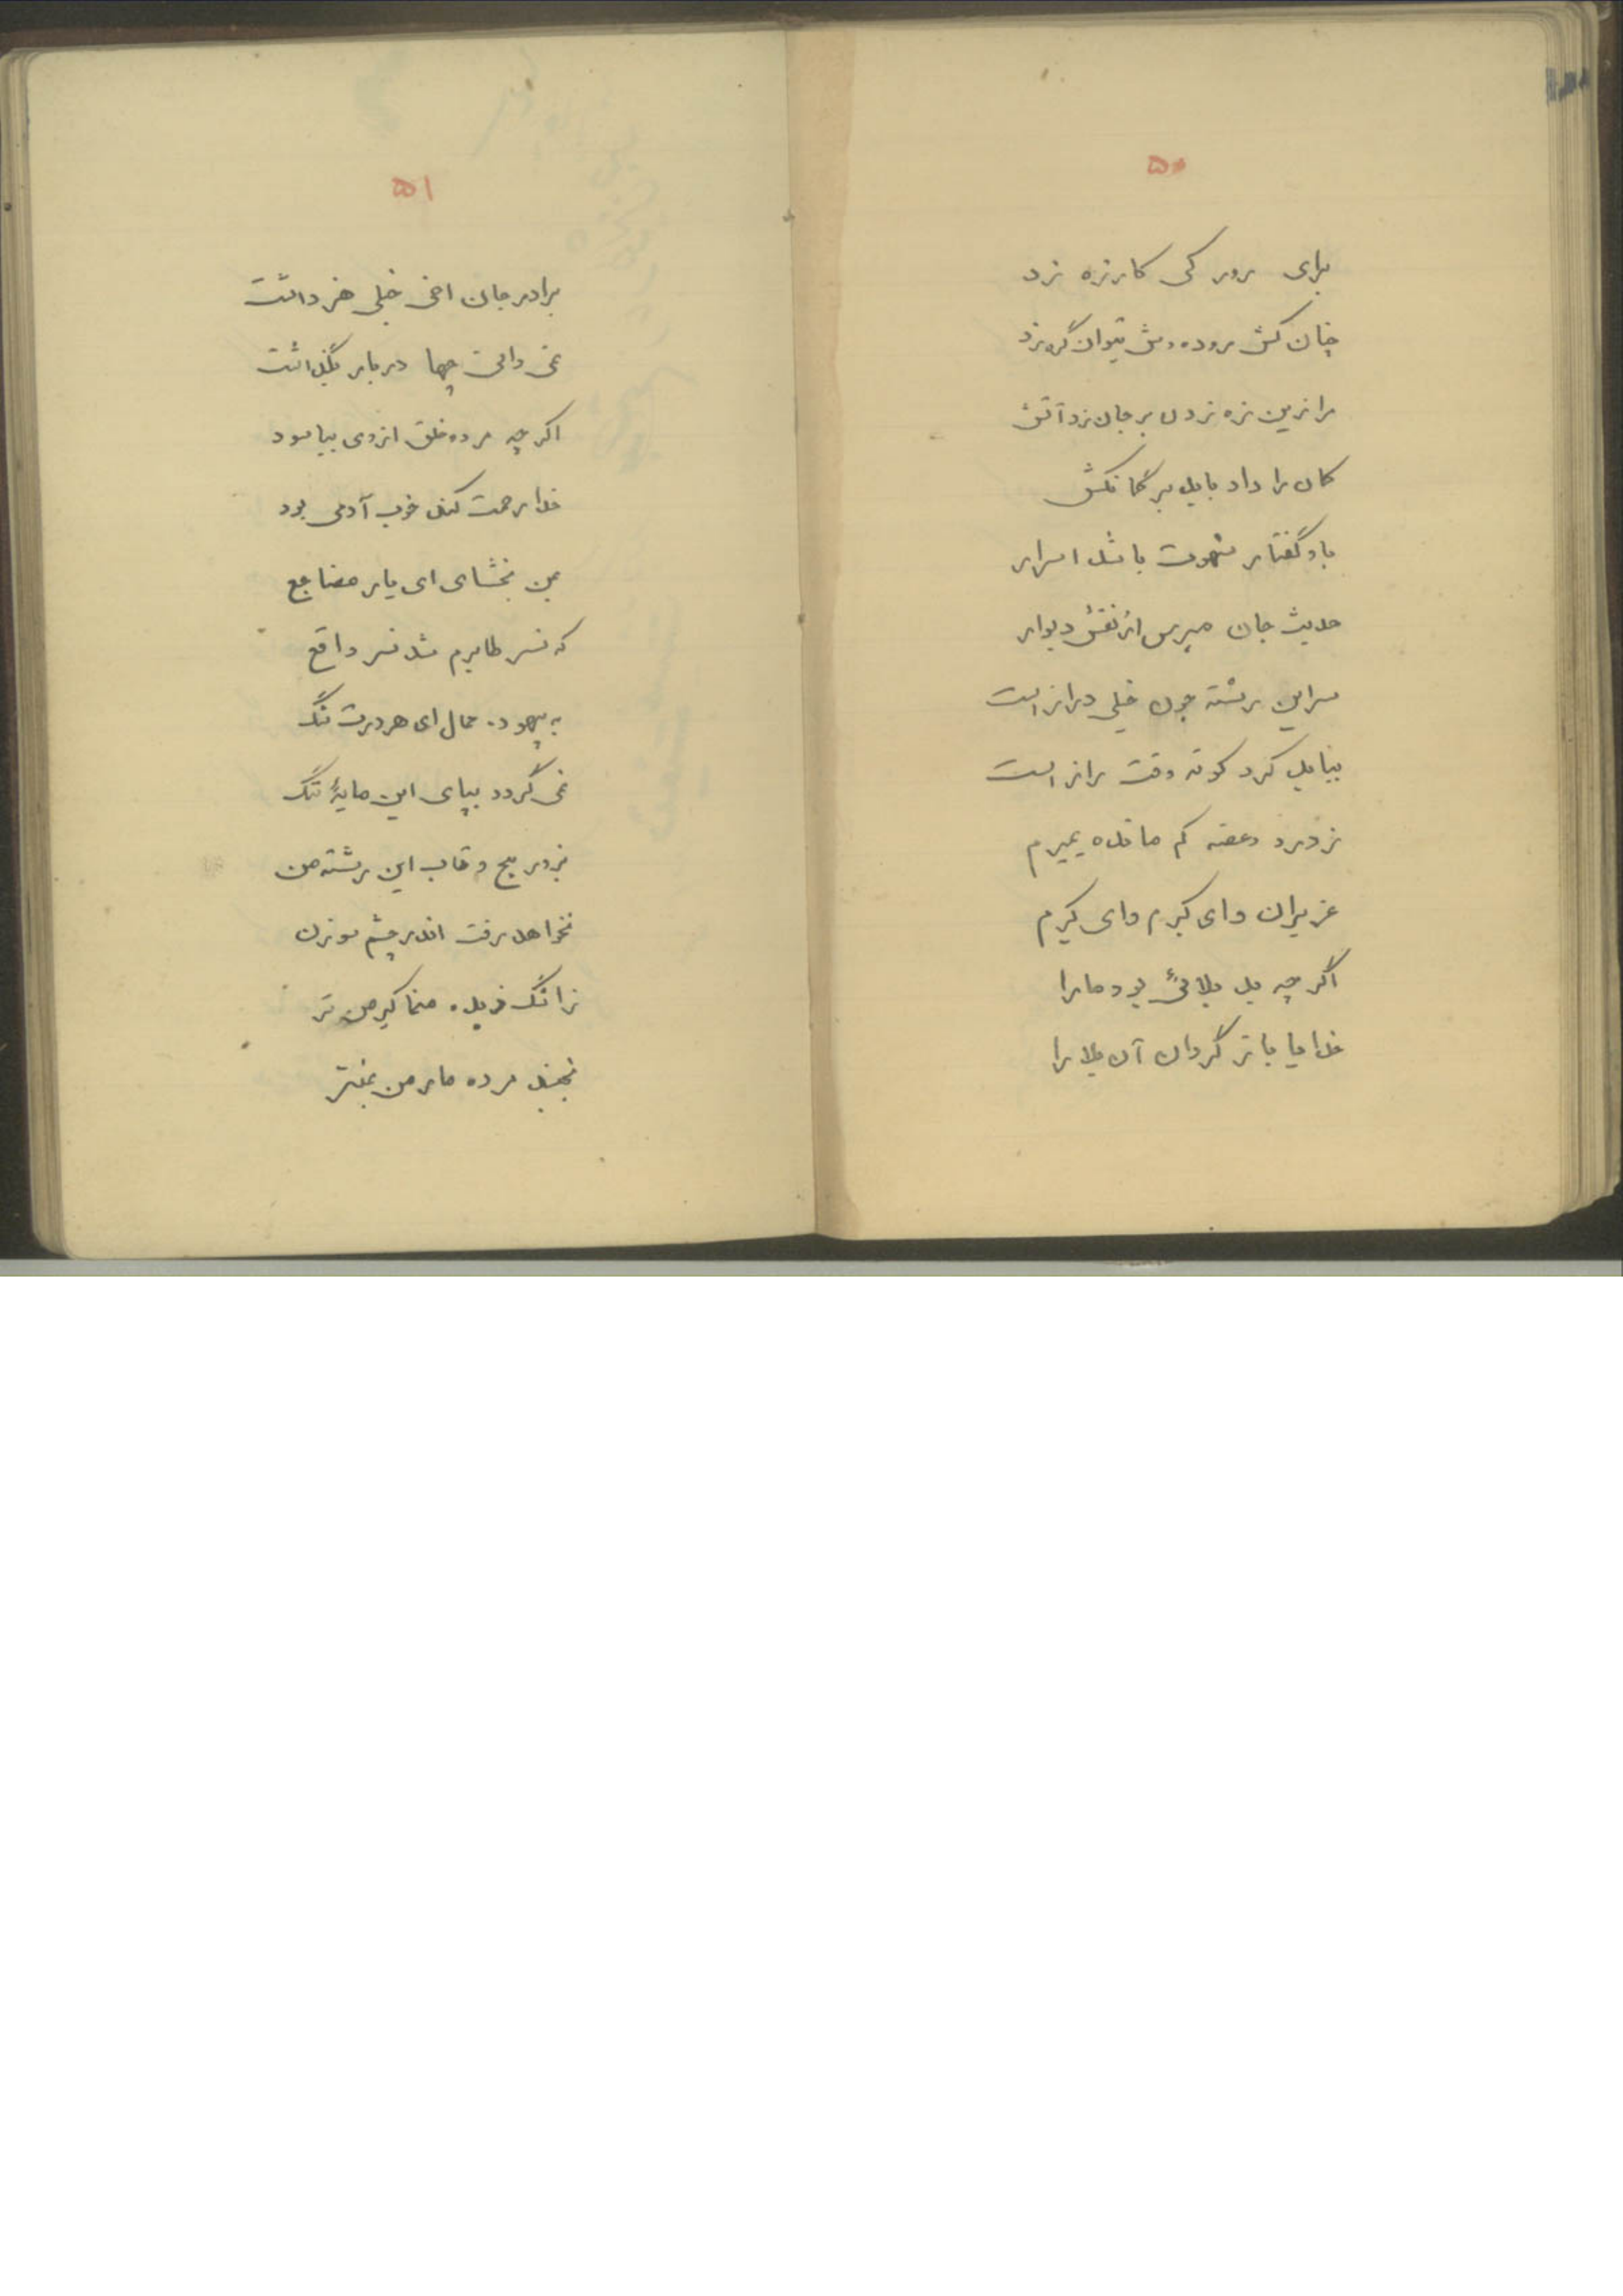 ۵۰
برای روز کی کارزه زد
چنان کش روده‌وش بتوان گره زد
مرا زین زه زدن بر جان زد آتش
کمان را داد باید بر کمانکش
باد گفتار شهوت باشد اسرار
حدیث جان مپرس از نقش دیوار
سر این رشته چون خیلی دراز است
بباید کرد کوته وقت راز است
ز درد و غصه کم مانده بمیرم
عزیزان وای کیرم وای کیرم
اگر چه بد بلائی بود ما را
خدایا باز گردان آن بلا را
۵۱
برادر جان اخی خیلی هنر داشت
نمی دانی چها در بار بگذاشت
اگر چه مرده خلق از وی بیاسود
خدا رحمت کند خوب آدمی بود
بمن بخشای ای یار مضاجع
که نسر طایرم شد نسر واقع
به بیهوده ممال ای هر درت تنگ
نمی گردد بپای این مایهٔ ننگ
بزور پیچ و تاب این رشته من
نخواهد رفت اندر چشم سوزن
ز آنگ دریده منما کیر من تر
نجنبد مرده مار من بمنتر